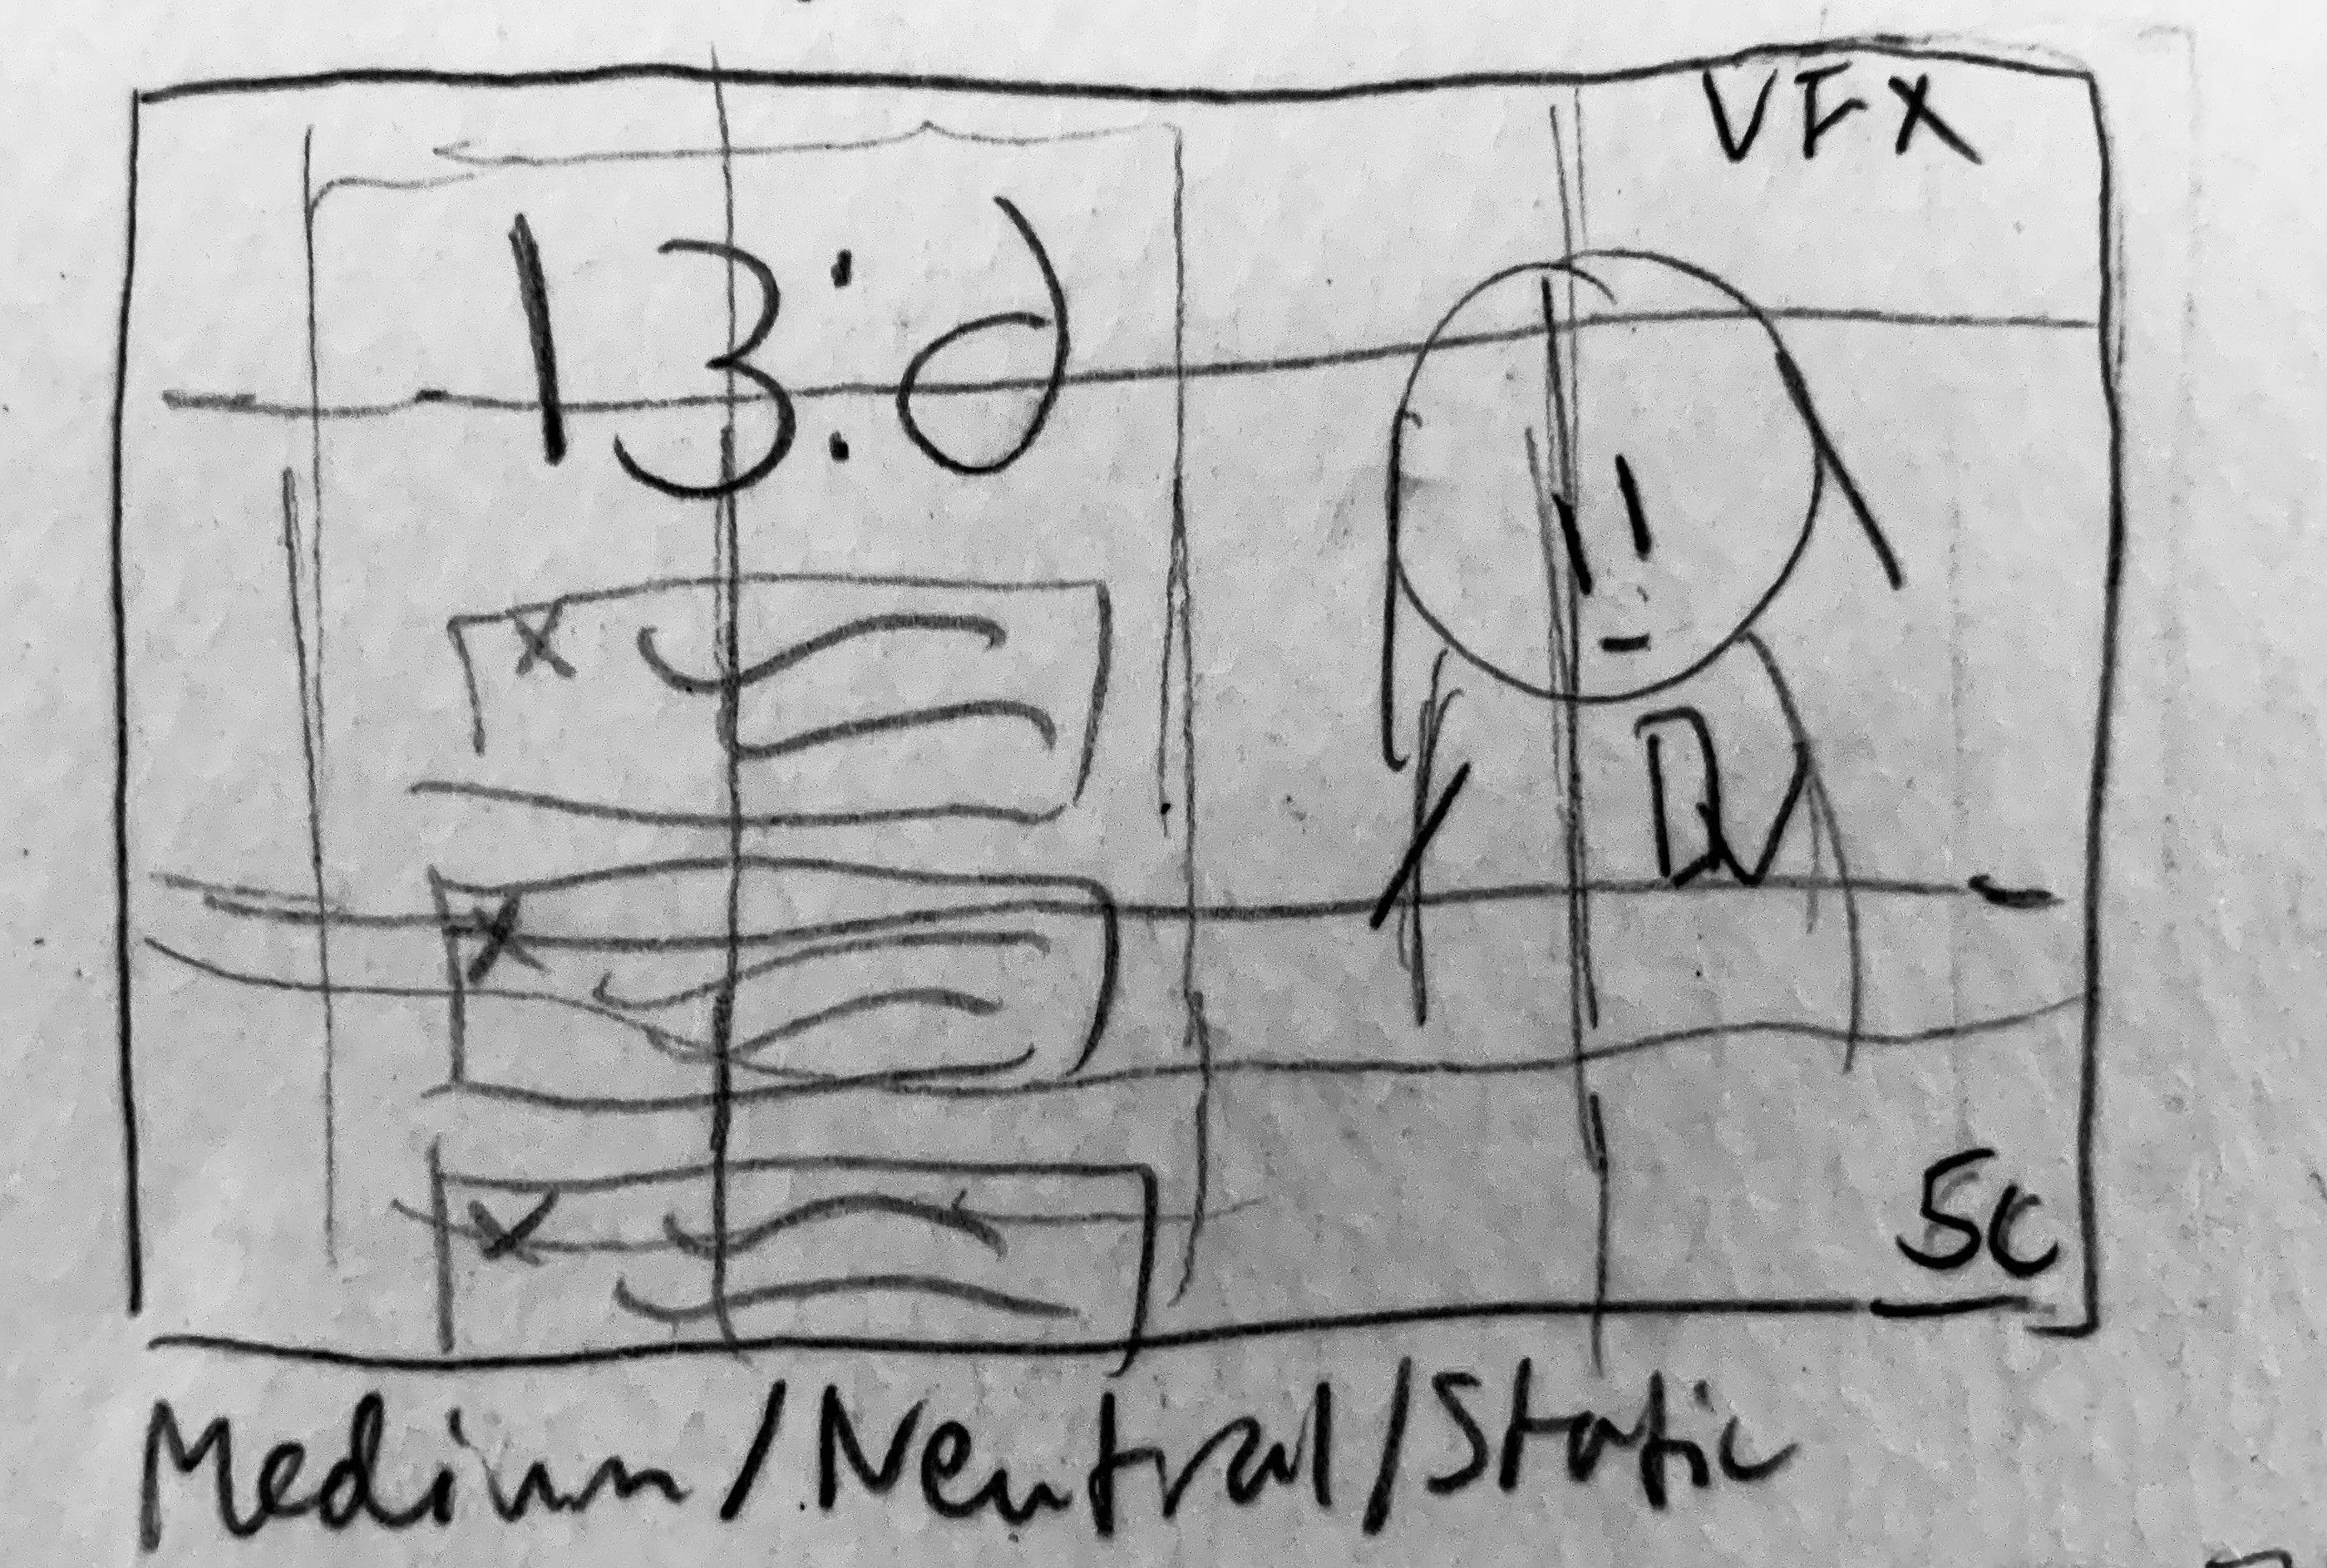 VFX
DV
5C
Medium/Neutral/Static